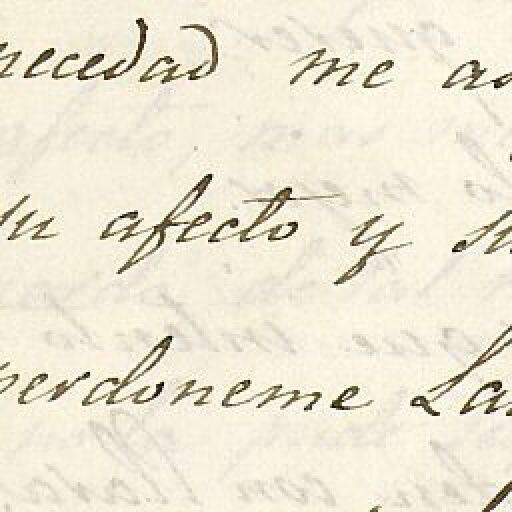 necedad me as
su afecto y su
perdoneme La